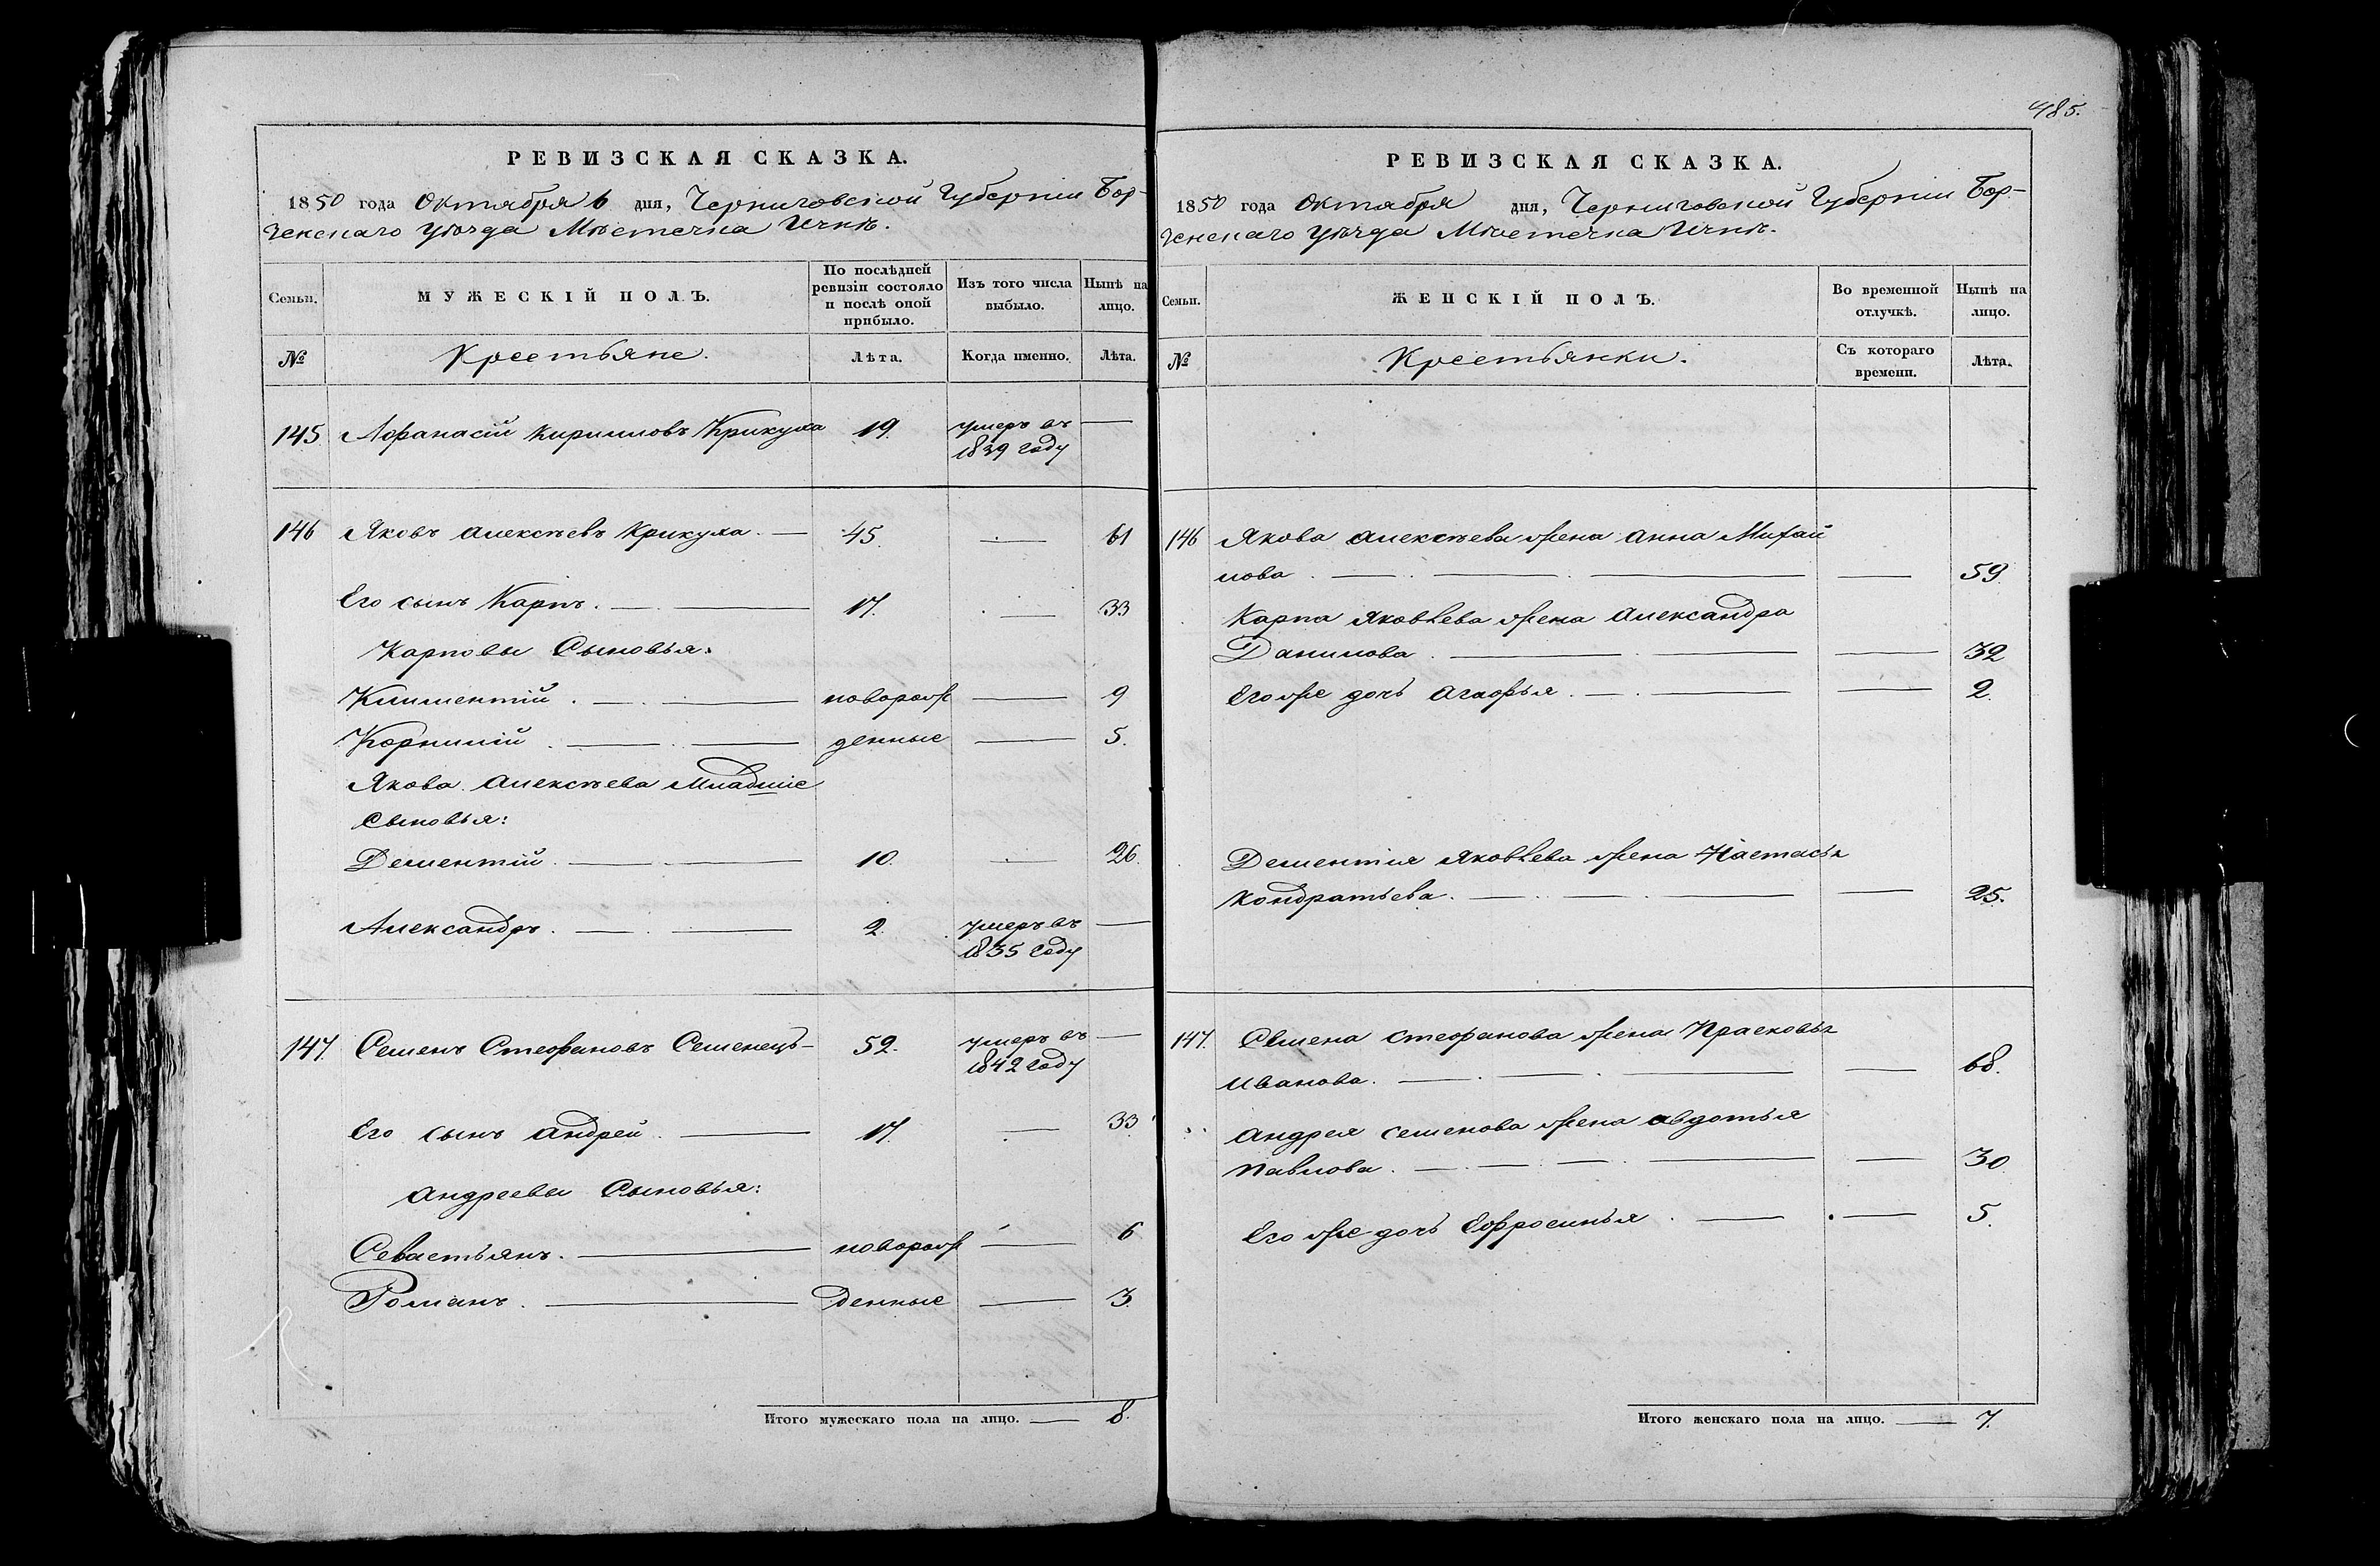 485.
РЕВИЗСКАЯ СКАЗКА.
1850 года Октября 6 дня, Черниговской Губерніи Бор-
зенскаго уѣзда Мѣстечка Ични.
Семьи. МУЖЕСКІЙ ПОЛЪ. По послѣдней ревизіи состояло и послѣ оной прибыло. Изъ того числа выбыло. Нынѣ на лицо.
№ Крестьяне. Лѣта. Когда именно. Лѣта.
145 Афанасій Кириловъ Крикуха 19. умеръ въ —
1839 году
146 Яковъ Алексѣевъ Крикуха. — 45. — 61
Его сынъ Карпъ. — 17. — 33
Карповы Сыновья:
Климентій. — новорож — 9
Корнилій. — денные — 5.
Якова Алексѣева Младшіе
Сыновья:
Дементій. — 10. — 26.
Александръ. — 2. умеръ въ —
1835 году
147 Семенъ Стефановъ Семенецъ — 52. умеръ въ —
1842 году
Его сынъ Андрей. — 17. — 33
Андреевы Сыновья:
Севастьянъ. — новорож — 6
Романъ. — денные — 3.
Итого мужескаго пола на лицо. — 8.
РЕВИЗСКАЯ СКАЗКА.
1850 года Октября дня, Черниговской Губерніи Бор-
зенскаго уѣзда Мѣстечка Ични.
Семьи. ЖЕНСКІЙ ПОЛЪ. Во временной отлучкѣ. Нынѣ на лицо.
№ Крестьянки. Съ котораго времени. Лѣта.
146 Якова Алексѣева жена Анна Михай
лова. — — 59.
Карпа Яковлева жена Александра
Данилова. — — 32
Его же дочь Агафья. — — 2.
Дементія Яковлева жена Настасья
Кондратьева. — — 25.
147. Семена Стефанова жена Прасковья
Иванова. — — 68.
Андрея Семенова жена Авдотья
Павлова. — — 30.
Его же дочь Ефросинья. — — 5.
Итого женскаго пола на лицо. — 7.